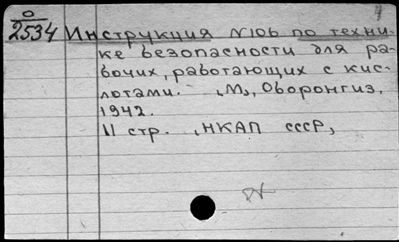 О
2534
Инструкция №106 по техни-
ке безопасности для ра-
бочих, работающих с кис-
лотами. М., Оборонгиз,
1942.
11 стр. , НКАП СССР,